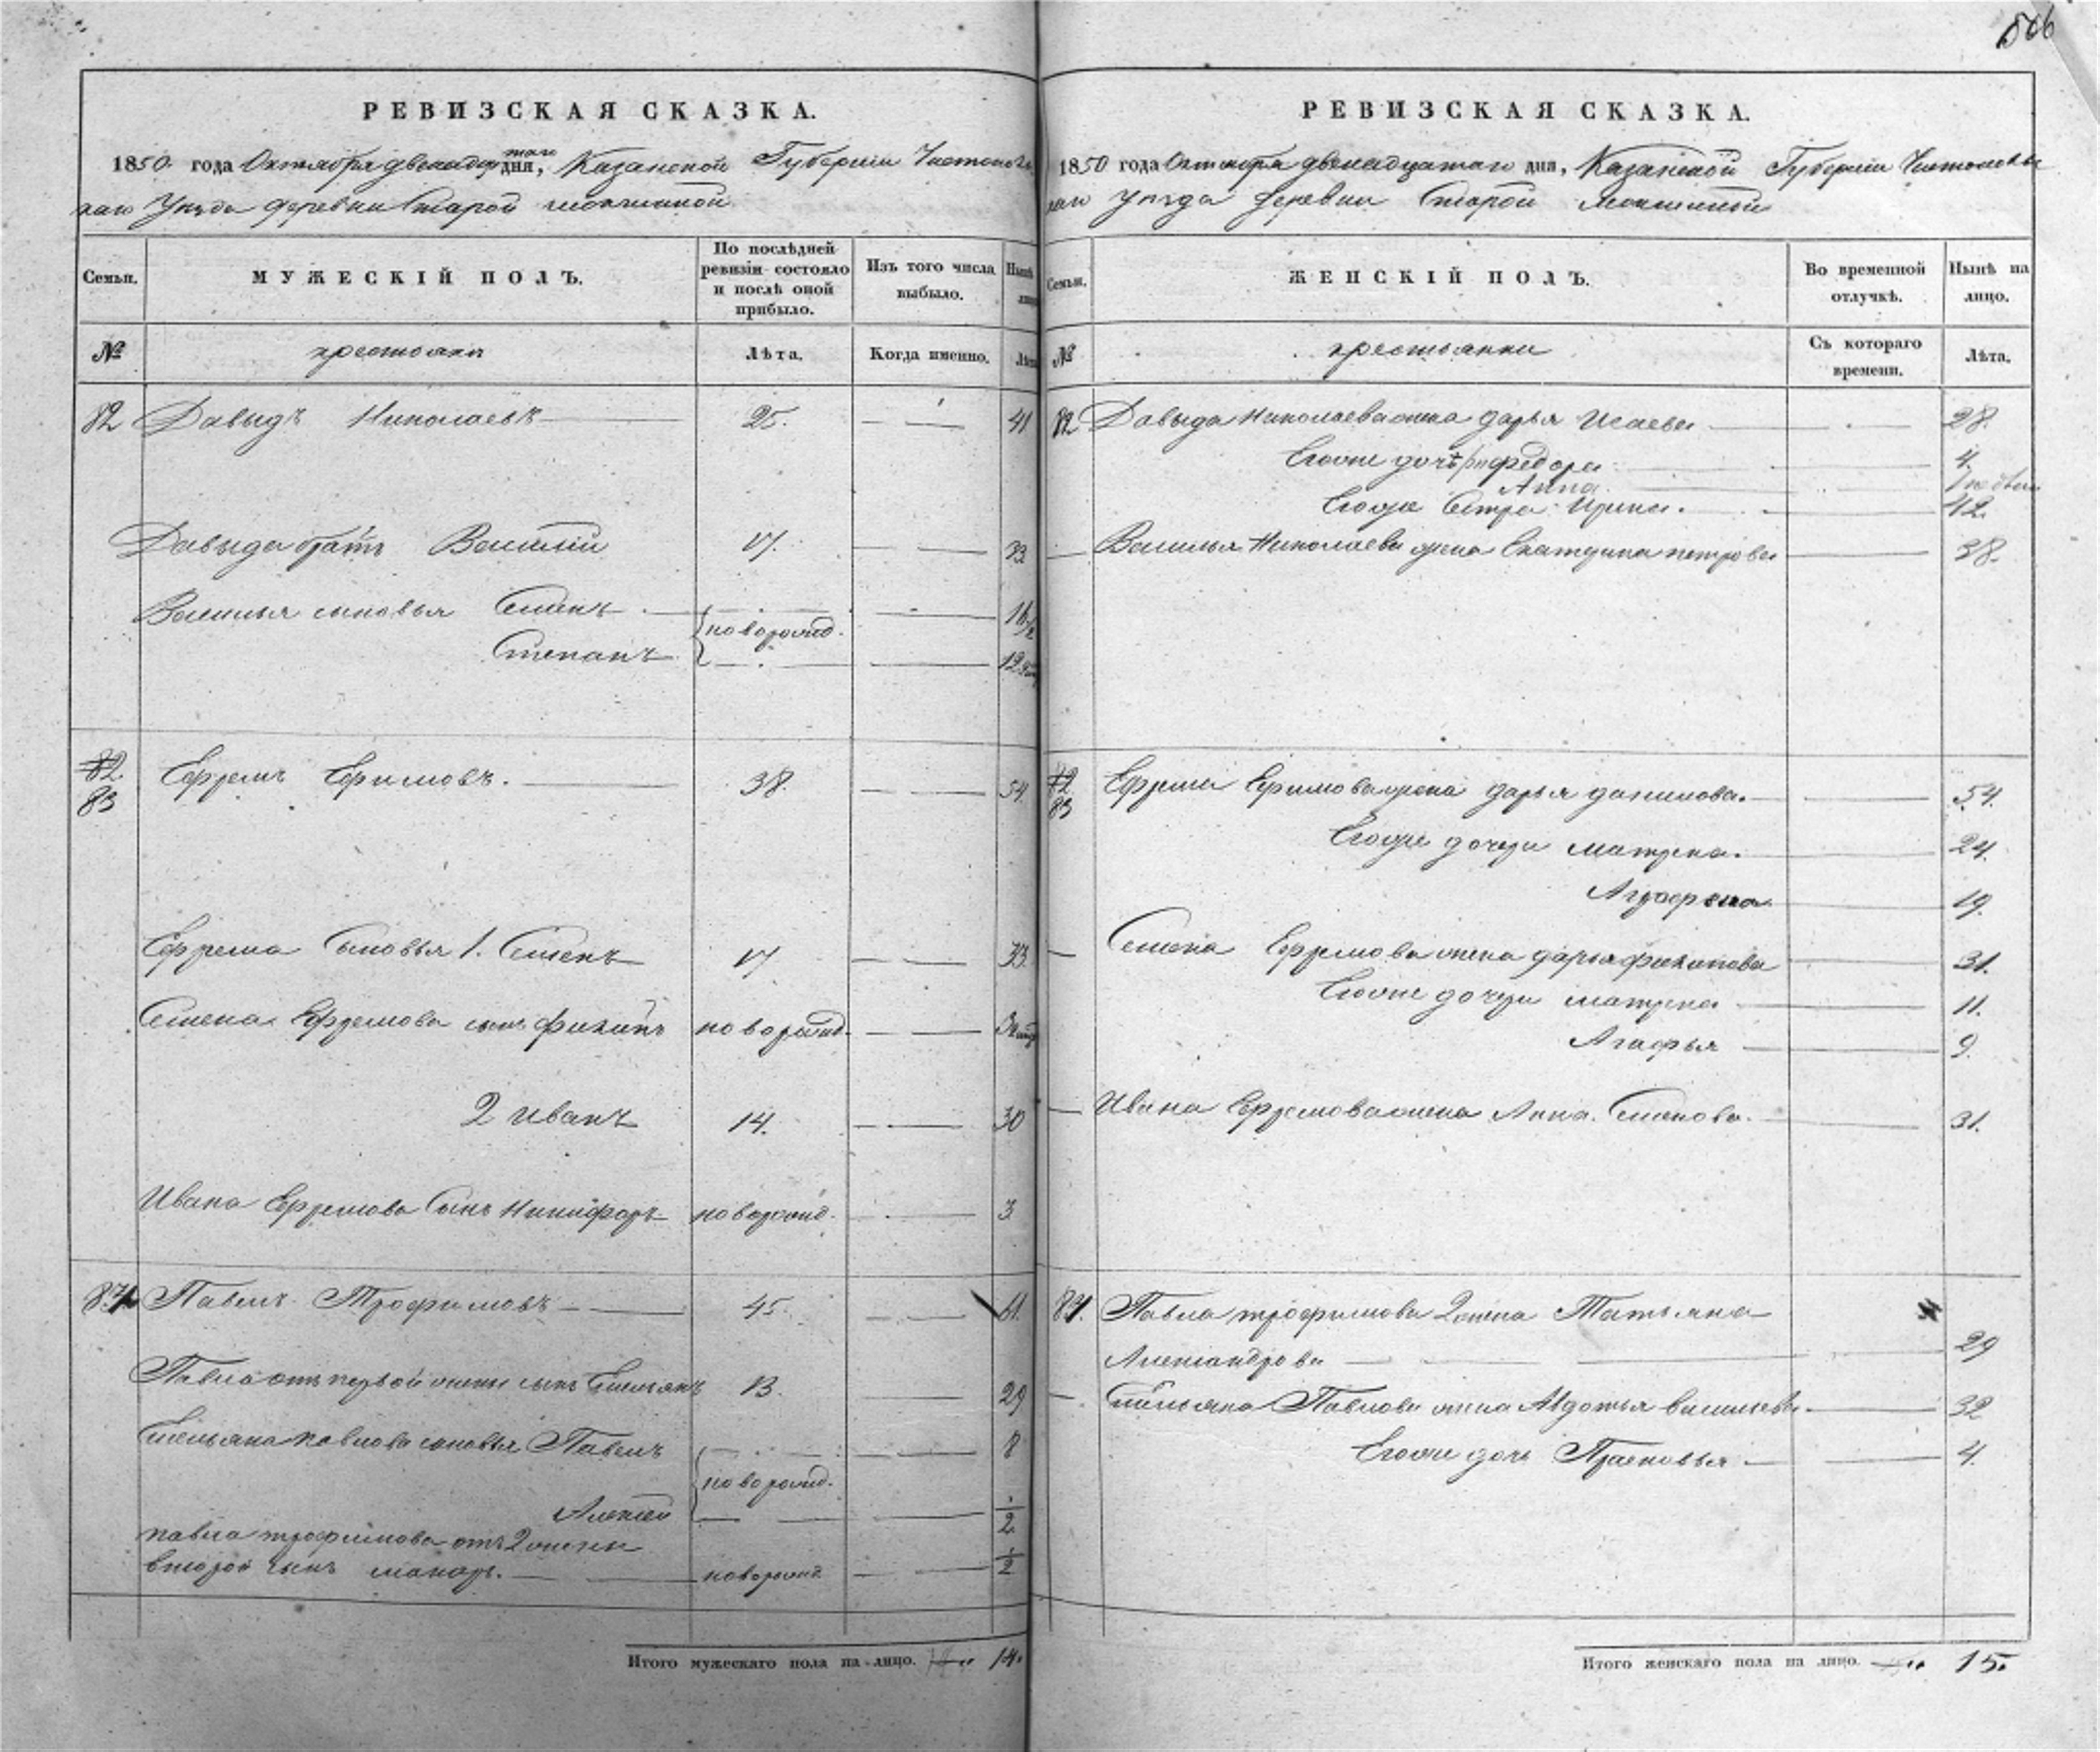 506
РЕВИЗСКАЯ СКАЗКА.
1850 года Октября двенадцатаго дня, Казанской Губернии Чистополь
скаго Уѣзда деревни Старой
Семьи. МУЖЕСКІЙ ПОЛЪ. По послѣдней ревизіи состояло и послѣ оной прибыло. Изъ того числа выбыло. Нынѣ
№ крестьяни Лѣта. Когда именно. Лѣта
82 Давыдъ Николаевъ 25. 41
Давыда братъ Василий 17. 33
Василья сыновья Семенъ новорожд. 16
Степанъ 12
82 83 Ефремъ Ефимовъ. 38. 54.
Ефрема сыновья 1. Семенъ 17 33
Семена Ефремова сынъ Филипъ новорожд.
2 Иванъ 14. 30
Ивана Ефремова сынъ Никифоръ новорожд. 3
84 Павелъ Трофимовъ 45. 61.
Павла отъ первой жены сынъ Емельянъ 13. 29
Емельяна Павлова сыновья Павелъ новорожд. 8
Алексей 1/2
Павла Трофимова отъ 2 жены
второй сынъ Макаръ. новорожд. 1/2
Итого мужескаго пола на-лицо. 14.
РЕВИЗСКАЯ СКАЗКА.
1850 года Октября двенадцатаго дня, Казанской Губернии Чистополь
скаго Уѣзда деревни Старой
Семьи. ЖЕНСКІЙ ПОЛЪ. Во временной отлучкѣ. Нынѣ на лицо.
№ крестьянки Съ котораго времени. Лѣта.
82 Давыда Николаева жена Дарья Исаева 28.
Егоже дочь Федора 4.
Анна
Егоже сестра Ирина. 42.
Василья Николаева жена Екатерина Петрова 38.
82 83 Ефрема Ефимова жена Дарья Данилова. 54.
Егоже дочери Матрена. 24.
Аграфена 19.
Семена Ефремова жена Дарья Филипова 31.
Егоже дочери Матрена 11.
Агафья 9.
Ивана Ефремова жена Анна Семенова. 31.
84. Павла Трофимова 2 жена Татьяна
Александрова 29
Емельяна Павлова жена Авдотья Васильева. 32
Егоже дочь Прасковья 4.
Итого женскаго пола на лицо. 15.